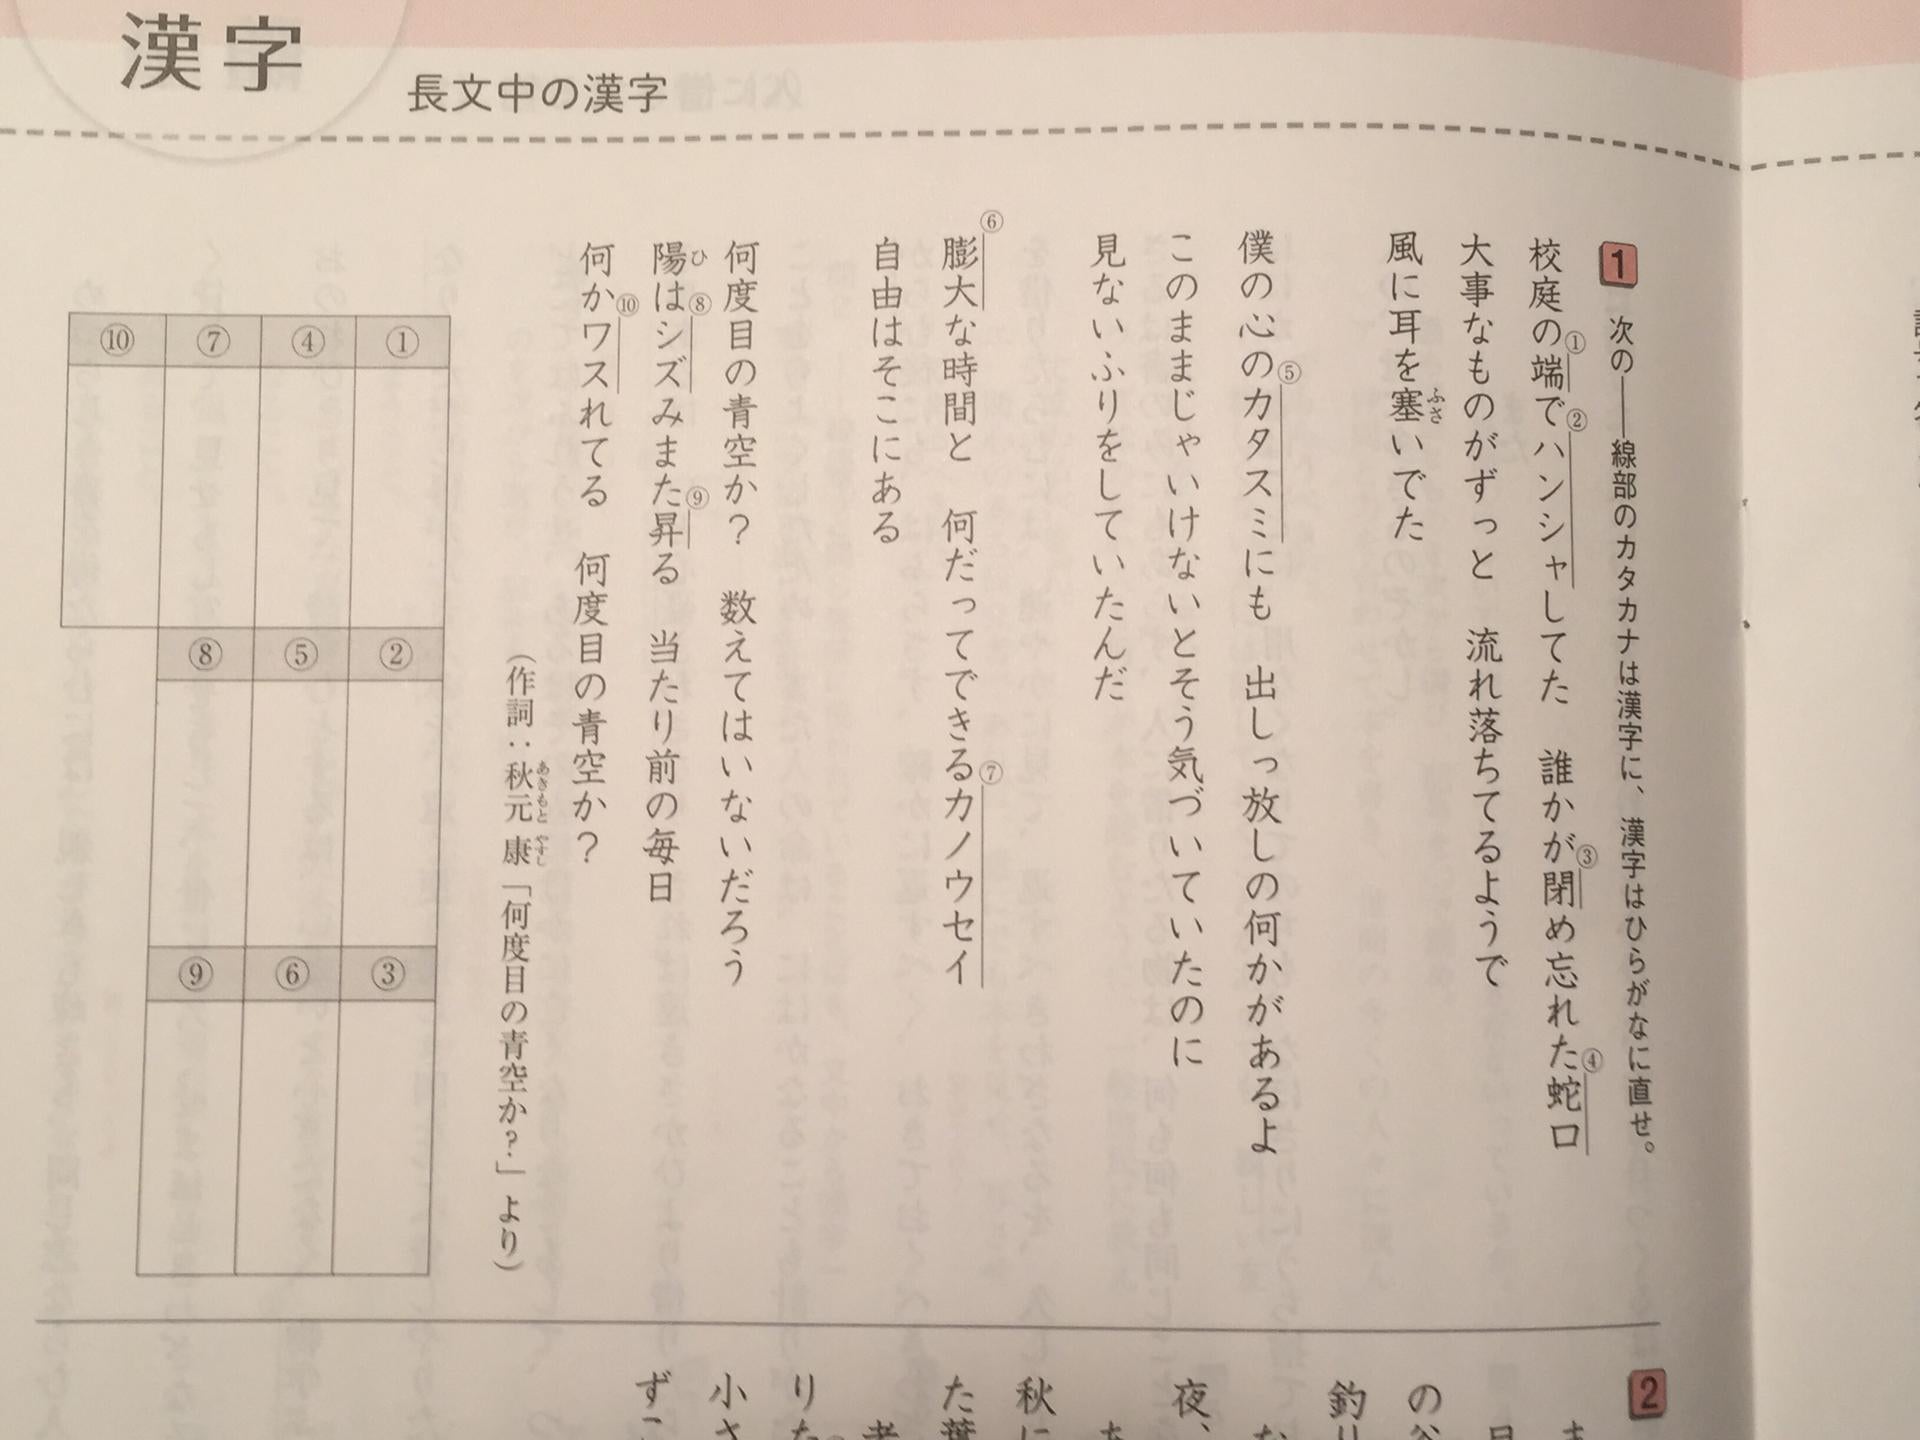 漢字
長文中の漢字
1 次の――線部のカタカナは漢字に、漢字はひらがなに直せ。
校庭の①端で②ハンシャしてた　誰かが③閉め忘れた④蛇口
大事なものがずっと　流れ落ちてるようで
風に耳を塞いでた
ふさ
僕の心の⑤カタスミにも　出しっ放しの何かがあるよ
このままじゃいけないとそう気づいていたのに
見ないふりをしていたんだ
⑥膨大な時間と　何だってできる⑦カノウセイ
自由はそこにある
何度目の青空か？　数えてはいないだろう
陽は⑧シズみまた⑨昇る　当たり前の毎日
ひ
何か⑩ワスれてる　何度目の青空か？
（作詞：秋元 康「何度目の青空か？」より）
あきもと やすし
① ④ ⑦ ⑩
② ⑤ ⑧
③ ⑥ ⑨
2
の
釣り
夜、
秋に
た葉
りた
小さ